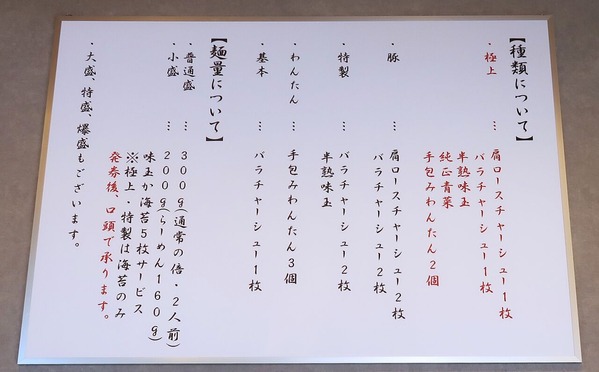 【種類について】
・極上 … 肩ロースチャーシュー1枚
バラチャーシュー1枚
半熟味玉
純正青菜
手包みわんたん2個
・豚 … 肩ロースチャーシュー2枚
バラチャーシュー2枚
・特製 … バラチャーシュー2枚
半熟味玉
・わんたん … 手包みわんたん3個
・基本 … バラチャーシュー1枚
【麺量について】
・普通盛 … 300g(通常の倍・2人前)
・小盛 … 200g(らーめん160g)
味玉か海苔5枚サービス
※極上・特製は海苔のみ
発券後、口頭で承ります。
・大盛、特盛、爆盛もございます。